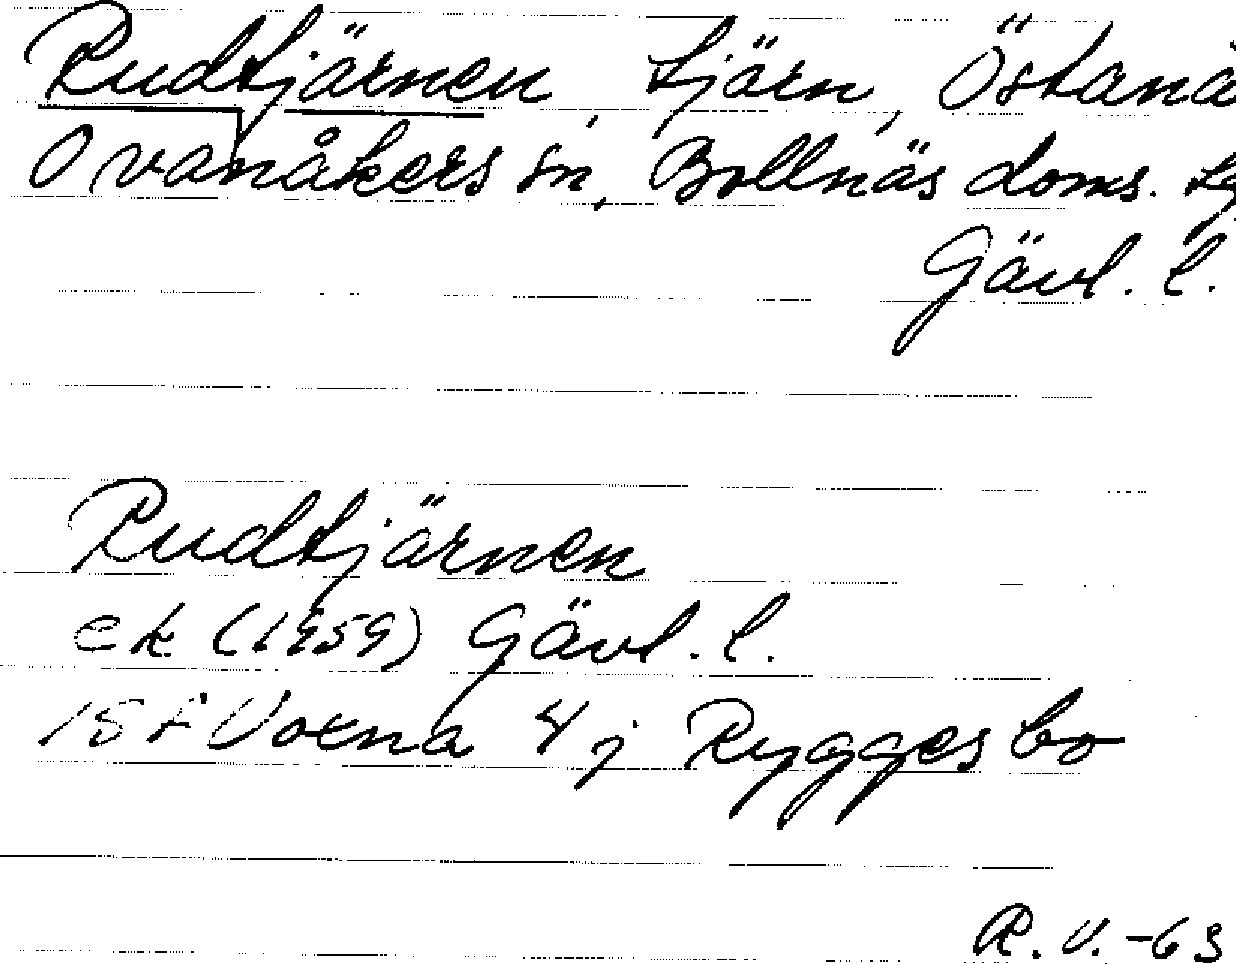 Rudtjärnen, tjärn, Östanå
Ovanåkers sn, Bollnäs doms.
Gävl. l.
Rudtjärnen
ek (1959) Gävl. l.
15 F Voxna 4 j Ryggesbo
R.V.-63